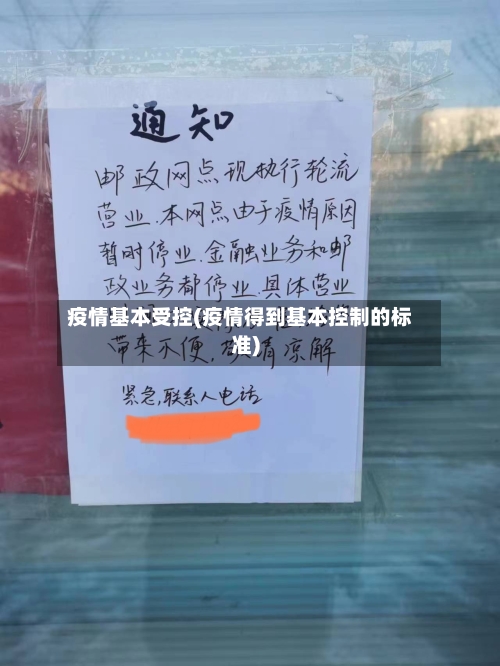 通知
邮政网点现执行轮流
营业.本网点由于疫情原因
暂时停业.金融业务和邮
政业务都停业.具体营业
疫情基本受控(疫情得到基本控制的标
准)
带来不便,敬请凉解
紧急,联系人电话